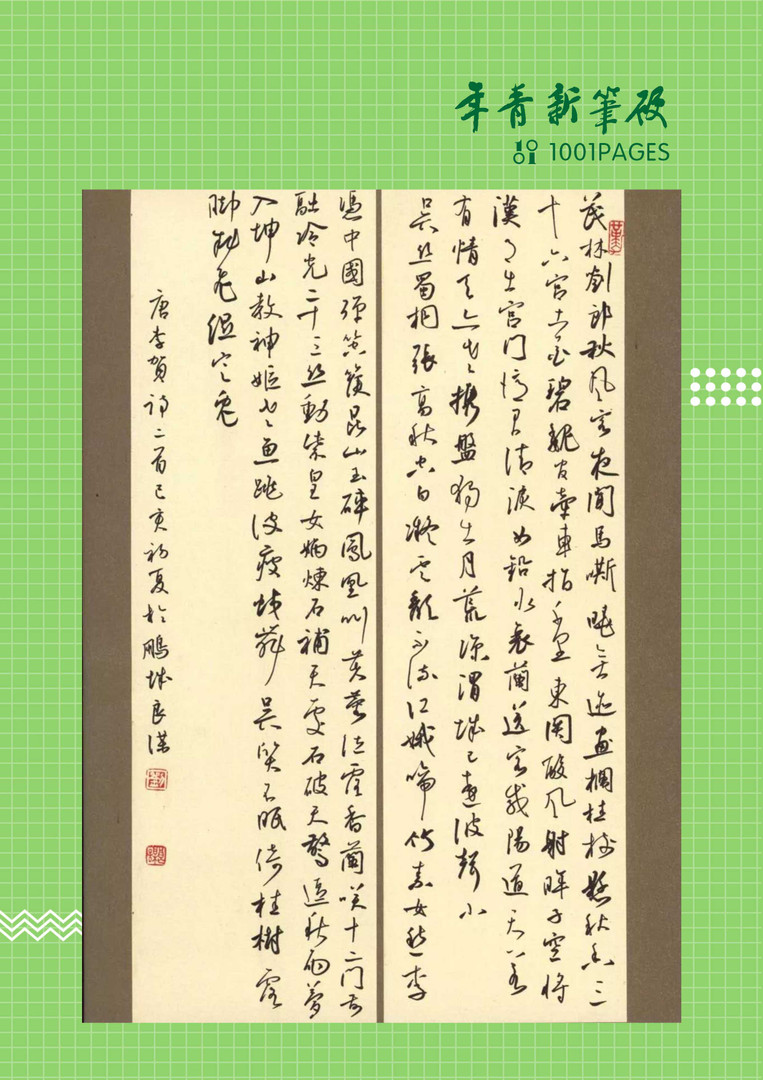 筆新青年
1001PAGES
茂林劉郎秋風客夜聞馬嘶曉無迹畫欄桂樹懸秋香三
十六宮土花碧魏官牽車指千里東関酸風射眸子空將
漢月出宮門憶君清淚如鉛水衰蘭送客咸陽道天若
有情天亦老攜盤獨出月荒涼渭城已遠波聲小
吳絲蜀桐張高秋空白凝雲頹不流江娥啼竹素女愁李
憑中國彈箜篌昆山玉碎鳳凰叫芙蓉泣露香蘭咲十二門前
融冷光二十三絲動紫皇女媧煉石補天處石破天驚逗秋雨夢
入坤山教神嫗老魚跳波瘦蛟舞吳質不眠倚桂樹露
脚斜飛濕寒兔
唐李賀詩二首己亥初夏於鵬城良謀